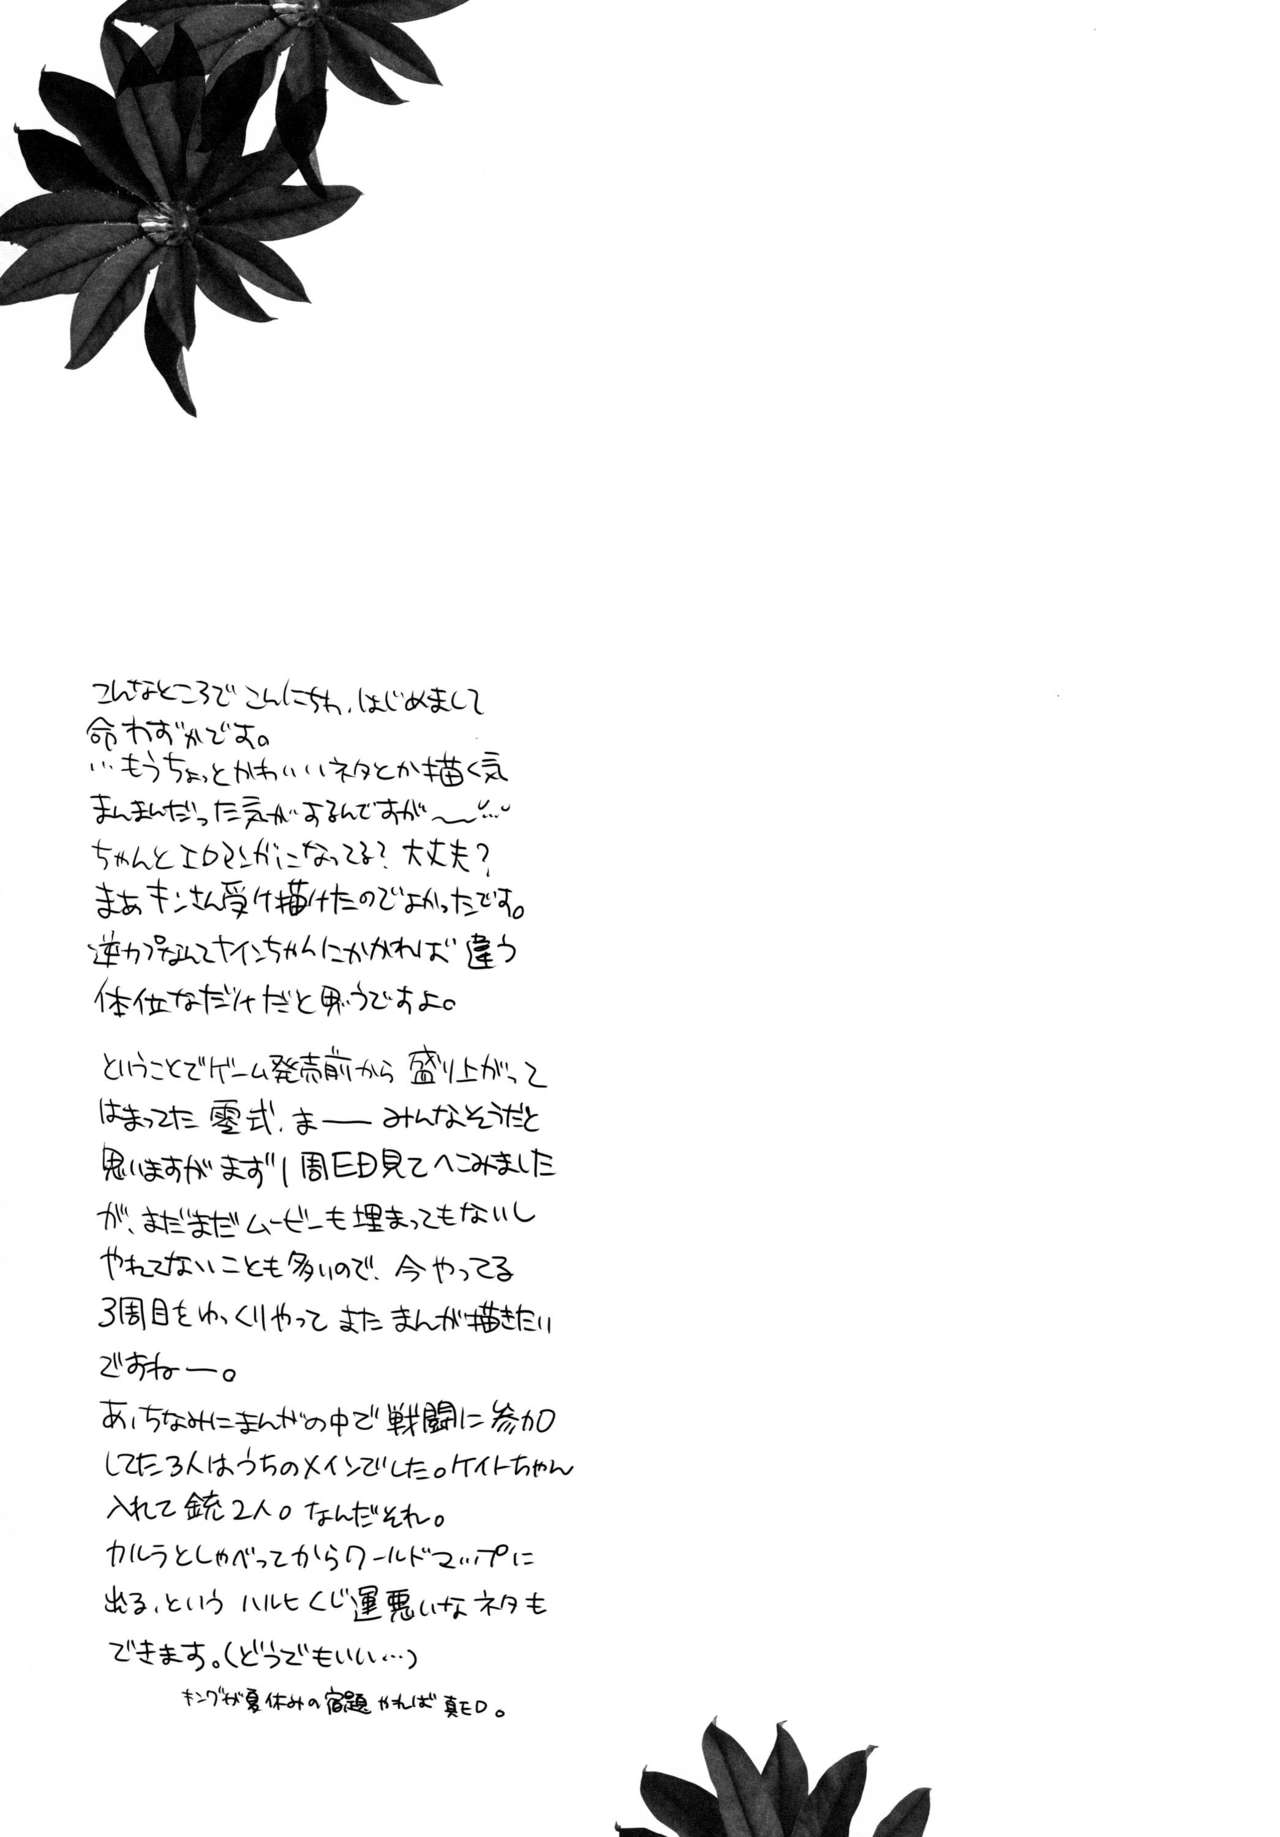 こんなところで こんにちわ、はじめまして
命わずかです。
…もうちょっとかわいいネタとか描く気
まんまんだった気がするんですが〜…
ちゃんとエロマンガになってる?大丈夫?
まあキンさん受け描けたのでよかったです。
逆カプなんてナインちゃんにかかれば違う
体位なだけだと思うですよ。
ということでゲーム発売前から盛り上がって
はまってた零式、まーーみんなそうだと
思いますがまず1周ED見てへこみました
が、まだまだムービーも埋まってもないし
やれてないことも多いので、今やってる
3周目をゆっくりやって また まんが描きたい
ですねー。
あ、ちなみにまんがの中で戦闘に参加
してた3人はうちのメインでした。ケイトちゃん
入れて銃2人。なんだそれ。
カルラとしゃべってからワールドマップに
出る、という ハルヒくじ運悪いなネタも
できます。(どうでもいい…)
キングが夏休みの宿題やれば真ED。